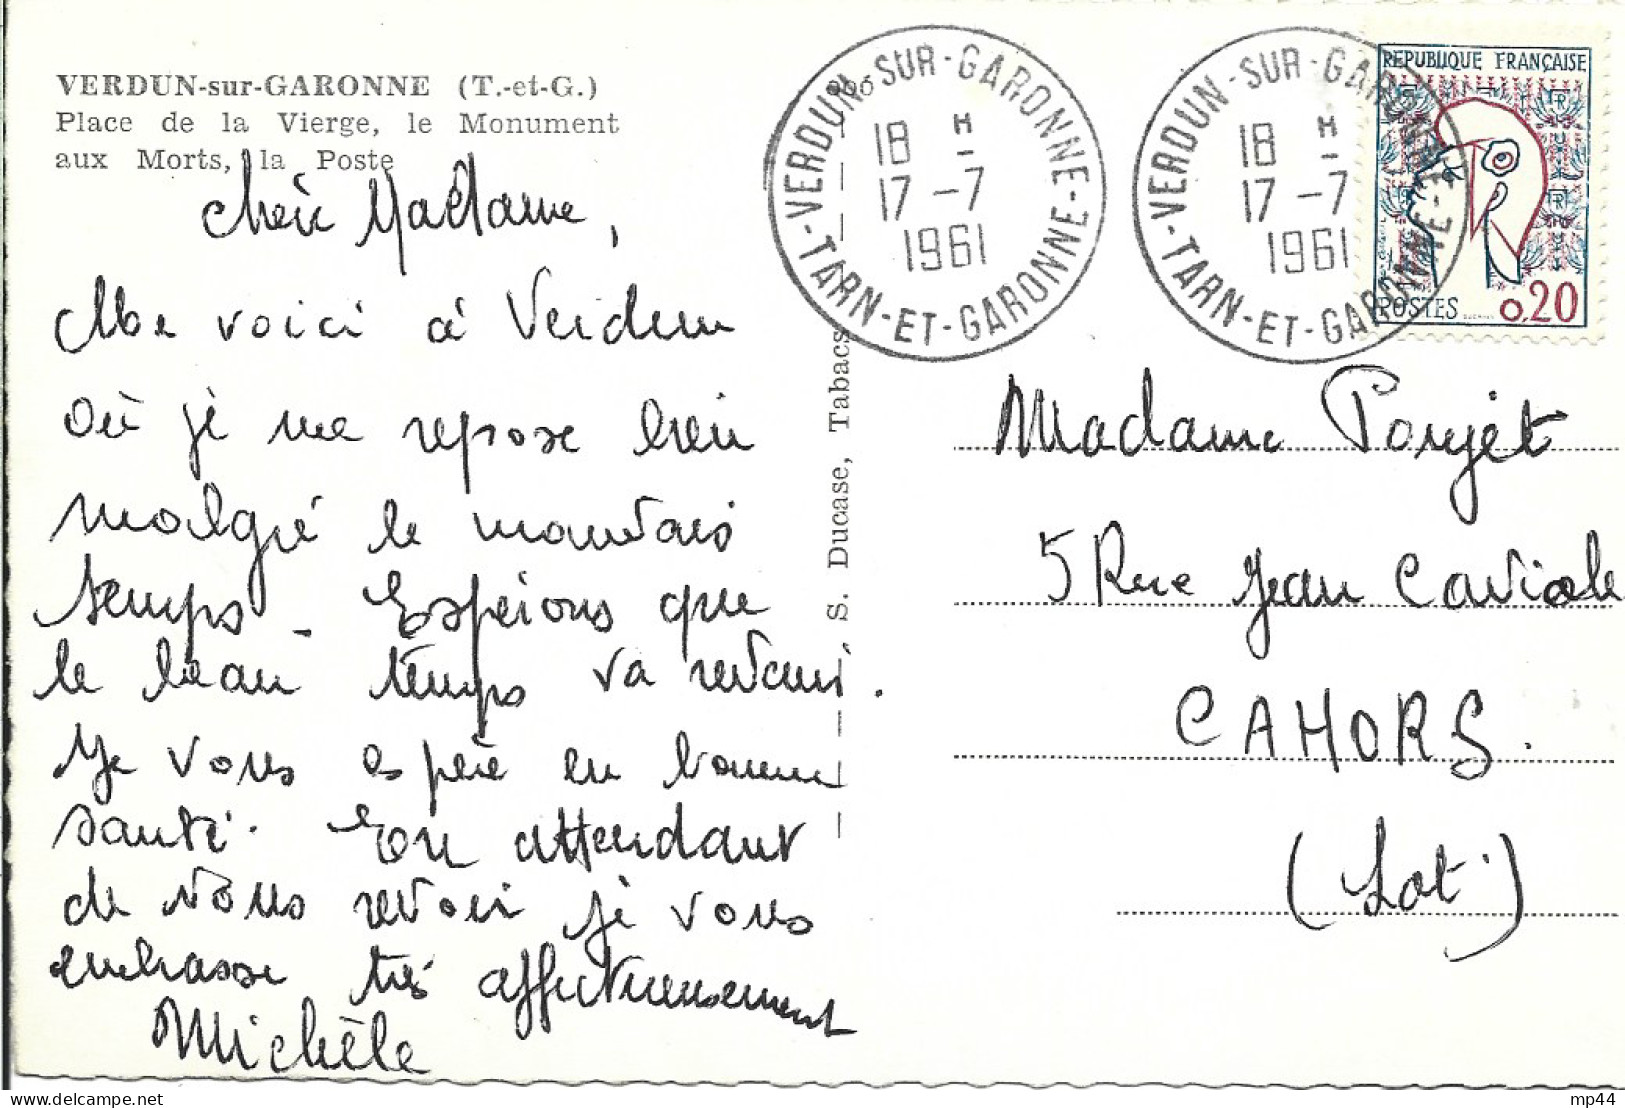 VERDUN-sur-GARONNE (T.-et-G.)
Place de la Vierge, le Monument
aux Morts, la Poste
Chère Madame,
Me voici à Verdun
où je me repose bien
malgré le mauvais
temps. Espérons que
le beau temps va revenir.
Je vous espère en bonne
santé. En attendant
de vous revoir je vous
embrasse très affectueusement
Michèle
S. Ducase, Tabacs
VERDUN-SUR-GARONNE
18 H
17-7
1961
TARN-ET-GARONNE
VERDUN-SUR-GARONNE
18 H
17-7
1961
TARN-ET-GARONNE
REPUBLIQUE FRANÇAISE
POSTES 0,20
Madame Poujet
5 Rue Jean Caviole
CAHORS.
(Lot)
mp44